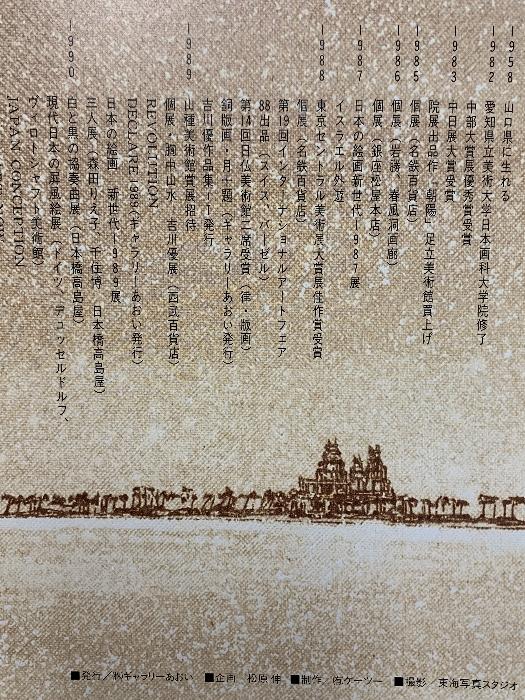 1958 山口県に生れる
1982 愛知県立美術大学日本画科大学院修了
中部大賞展優秀賞受賞
1983 中日展大賞受賞
院展出品作「朝陽」足立美術館買上げ
1985 個展（名鉄百貨店）
1986 個展（岩勝・春風洞画廊）
個展（銀座松屋本店）
1987 日本の絵画新世代1987展
イスラエル外遊
1988 東京セントラル美術展大賞展佳作賞受賞
個展（名鉄百貨店）
第19回インターナショナルアートフェア
88出品（スイス、バーゼル）
第14回日仏美術館二席受賞（律・版画）
銅版画 月十題（ギャラリーあおい発行）
吉川優作品集I・II発行
1989 山種美術館賞展招待
個展・胸中山水 吉川優展（西武百貨店）
REVOLUTION
DECLARE 1989（ギャラリーあおい発行）
日本の絵画 新世代1989展
三人展（森田りえ子 千住博 日本橋高島屋）
1990 白と黒の協奏曲展（日本橋高島屋）
現代日本の屏風絵展（ドイツ、デュッセルドルフ、
ヴィロトシャフト美術館）
JAPAN CONCEPTION
■発行／㈱ギャラリーあおい ■企画 松原 伸 ■制作／㈲ケーツー ■撮影／東海写真スタジオ